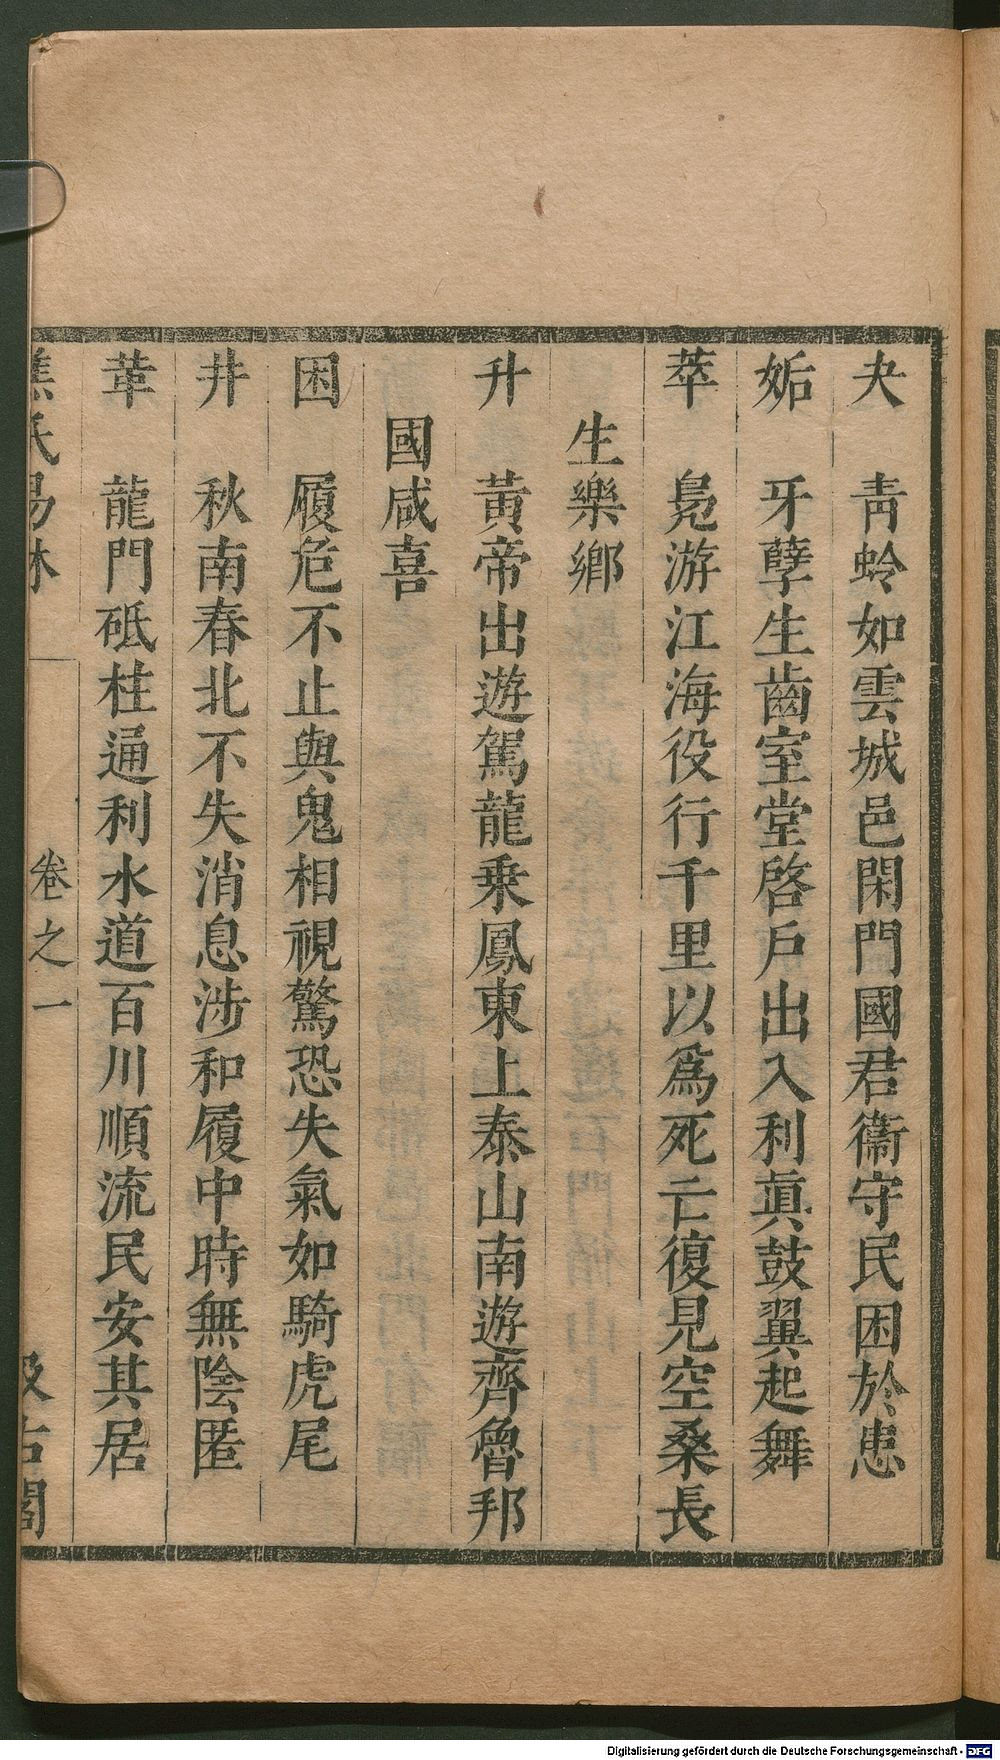 夬　青蛉如雲城邑閑門國君衞守民困於患
姤　牙孽生齒室堂啓戶出入利眞鼓翼起舞
萃　鳧游江海役行千里以爲死亡復見空桑長
生樂鄉
升　黃帝出遊駕龍乗鳳東上泰山南遊齊魯邦
國咸喜
困　履危不止與鬼相視驚恐失氣如騎虎尾
井　秋南春北不失消息涉和履中時無陰匿
革　龍門砥柱通利水道百川順流民安其居
焦氏易林　卷之一　汲古閣
Digitalisierung gefördert durch die Deutsche Forschungsgemeinschaft - DFG